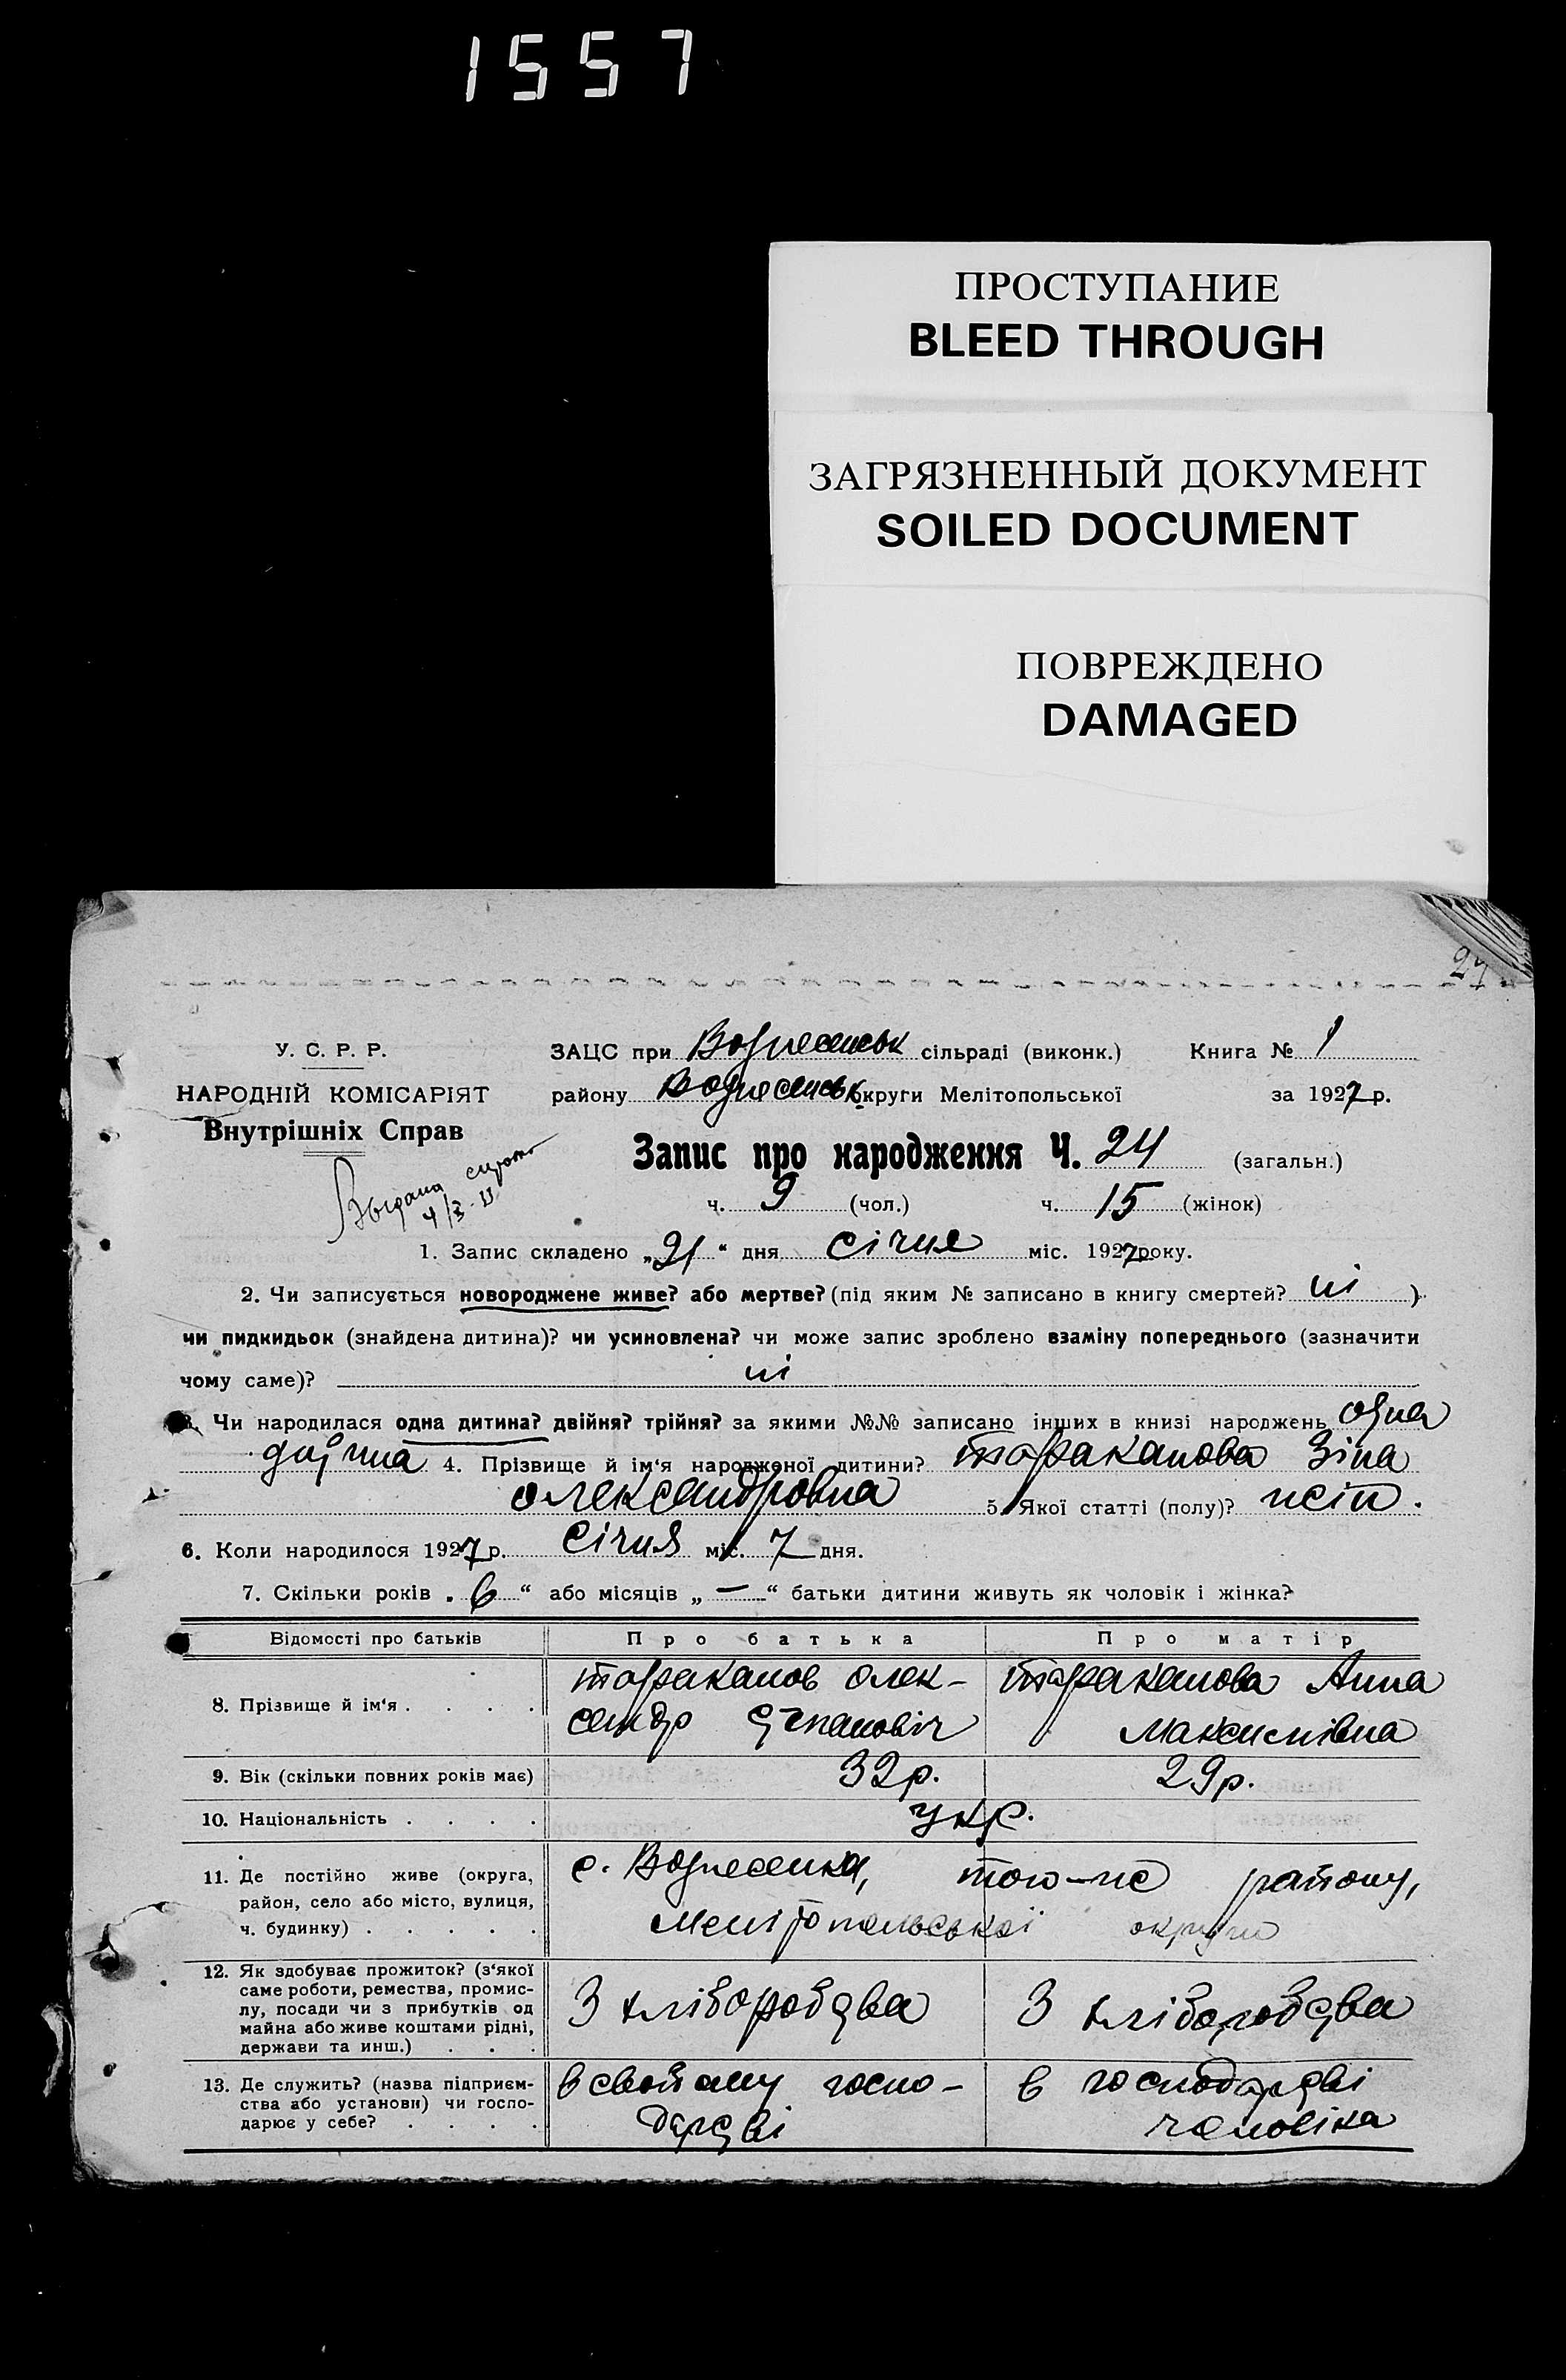 1557
ПРОСТУПАНИЕ
BLEED THROUGH
ЗАГРЯЗНЕННЫЙ ДОКУМЕНТ
SOILED DOCUMENT
ПОВРЕЖДЕНО
DAMAGED
У. С. Р. Р.
НАРОДНІЙ КОМІСАРІЯТ
Внутрішніх Справ
ЗАЦС при Вознесенськ сільраді (виконк.) Книга № 1
району Вознесенськ округи Мелітопольської за 1927 р.
Запис про народження Ч. 24 (загальн.)
ч. 9 (чол.) ч. 15 (жінок)
1. Запис складено „21“ дня січня міс. 1927 року.
2. Чи записується новороджене живе? або мертве? (під яким № записано в книгу смертей? ні )
чи пидкидьок (знайдена дитина)? чи усиновлена? чи може запис зроблено взаміну попереднього (зазначити
чому саме)? ні
3. Чи народилася одна дитина? двійня? трійня? за якими №№ записано інших в книзі народжень одна
4. Прізвище й ім'я народженої дитини? Тараканова Зіна
Олександровна 5. Якої статті (полу)? жін.
6. Коли народилося 1927 р. січня міс. 7 дня.
7. Скільки років „6“ або місяців „—“ батьки дитини живуть як чоловік і жінка?
Відомості про батьків Про батька Про матір
8. Прізвище й ім'я . . . . Тараканов Олек-
сандр Степанович
Тараканова Анна
Максимівна
9. Вік (скільки повних років має) 32 р. 29 р.
10. Національність . . . . укр.
11. Де постійно живе (округа,
район, село або місто, вулиця,
ч. будинку) . . . . .
с. Вознесенка, того-же району,
Мелітопольської округи
12. Як здобуває прожиток? (з'якої
саме роботи, ремества, промис-
лу, посади чи з прибутків од
майна або живе коштами рідні,
держави та инш.) . . .
З хліборобства З хліборобства
13. Де служить? (назва підприєм-
ства або установи) чи госпо-
дарює у себе? . . . .
в свойому госпо-
дарстві
в господарстві
чоловіка